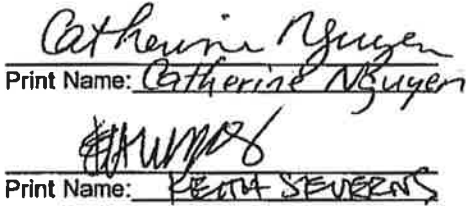 Catherine Nguyen
Print Name: Catherine Nguyen
Print Name: KEITH SEVERNS